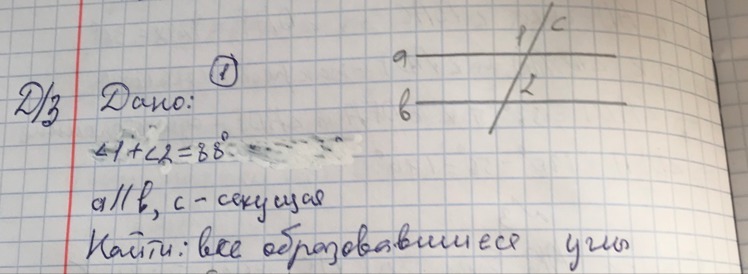 1
c
1
a
2
Д/з Дано:
b
∠1+∠2=88°
a||b, c - секущая
Найти: все образовавшиеся углы